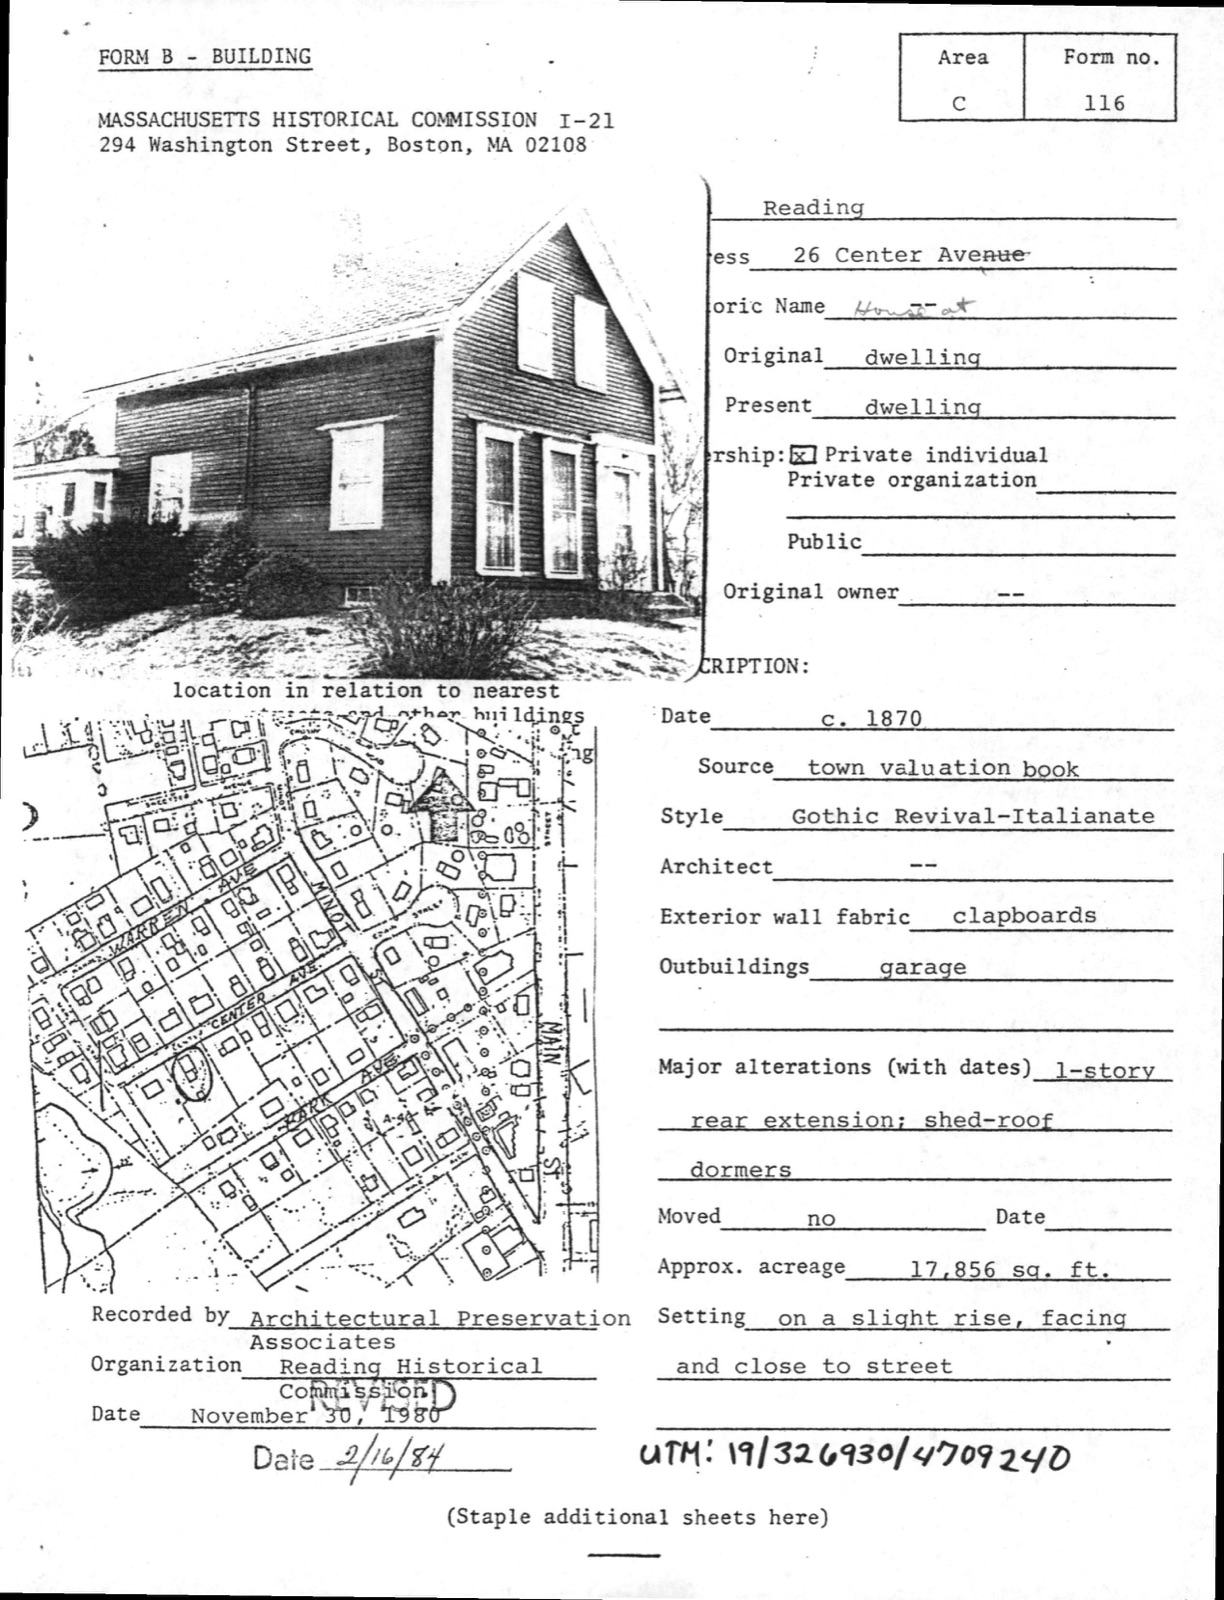 FORM B - BUILDING
Area
Form no.
C
116
MASSACHUSETTS HISTORICAL COMMISSION I-21
294 Washington Street, Boston, MA 02108
Reading
ess 26 Center Avenue
oric Name House at --
Original dwelling
Present dwelling
rship: x Private individual
Private organization
Public
Original owner --
CRIPTION:
location in relation to nearest
and other buildings
ng
WARREN AVE
MINOT ST
CENTER AVE
PARK AVE
MAIN ST
STREET
Date c. 1870
Source town valuation book
Style Gothic Revival-Italianate
Architect --
Exterior wall fabric clapboards
Outbuildings garage
Major alterations (with dates) 1-story
rear extension; shed-roof
dormers
Moved no Date
Approx. acreage 17,856 sq. ft.
Setting on a slight rise, facing
and close to street
Recorded by Architectural Preservation
Associates
Organization Reading Historical
Commission
REVISED
Date November 30, 1980
Date 2/16/84
UTM: 19/326930/4709240
(Staple additional sheets here)